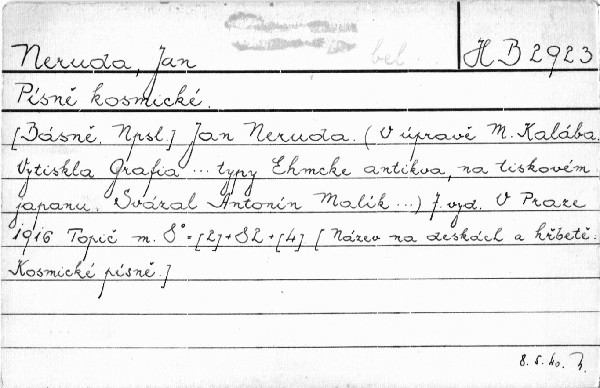 Neruda, Jan
bel...
H B 2923
Písně kosmické.
[Básně. Npsl.] Jan Neruda. (V úpravě M. Kalába.
Vytiskla Grafia ... typy Ehmcke antikva, na tiskovém
japanu. Svázal Antonín Malík ...) 7. vyd. V Praze
1916 Topič m. 8° = [2]+82+[4] [Název na deskách a hřbetě:
Kosmické písně.]
8. 5. 40.